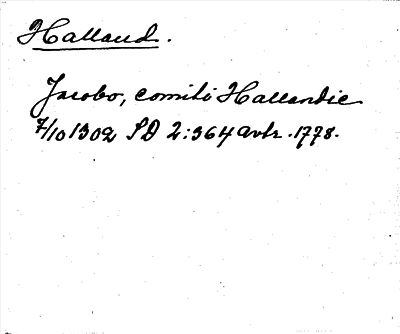 Halland.
Jacobo, comiti Hallandie
7/10 1302 SD 2:364 avtr. 1778.